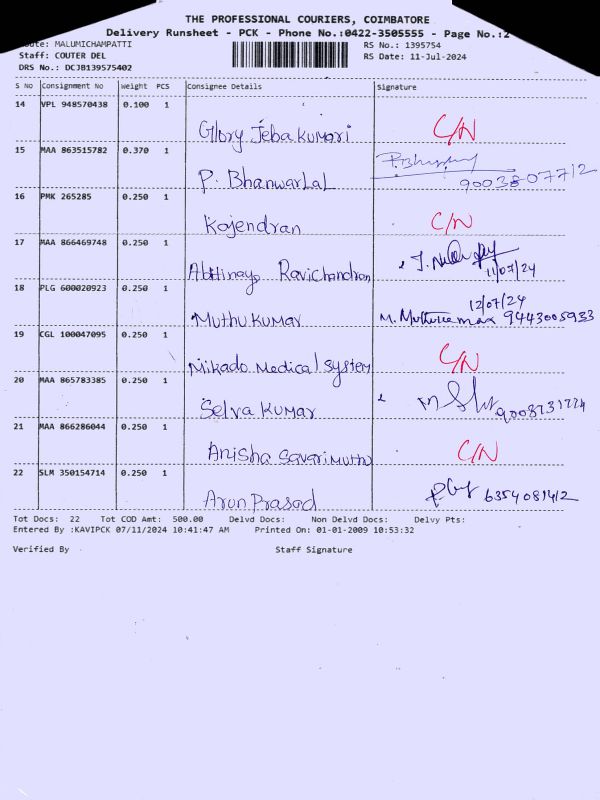 THE PROFESSIONAL COURIERS, COIMBATORE
Delivery Runsheet - PCK - Phone No.:0422-3505555 - Page No.:2
Route: MALUMICHAMPATTI RS No.: 1395754
Staff: COUTER DEL RS Date: 11-Jul-2024
DRS No.: DCJB139575402
S No Consignment No Weight PCS Consignee Details Signature
14 VPL 948570438 0.100 1
Glory Jeba Kumari C/N
15 MAA 863515782 0.370 1
P. Bhanwarlal 9003807712
16 PMK 265285 0.250 1
Kajendran C/N
17 MAA 866469748 0.250 1
Abhinaya Ravichandran 11/07/24
18 PLG 600020923 0.250 1 12/07/24
Muthu Kumar 9443005933
19 CGL 100047095 0.250 1
Mikado Medical System C/N
20 MAA 865783385 0.250 1
Selva Kumar
21 MAA 866286044 0.250 1
Anisha Savarimuthu C/N
22 SLM 350154714 0.250 1
Arun Prasad 6354081412
Tot Docs: 22 Tot COD Amt: 500.00 Delvd Docs: Non Delvd Docs: Delvy Pts:
Entered By :KAVIPCK 07/11/2024 10:41:47 AM Printed On: 01-01-2009 10:53:32
Verified By Staff Signature